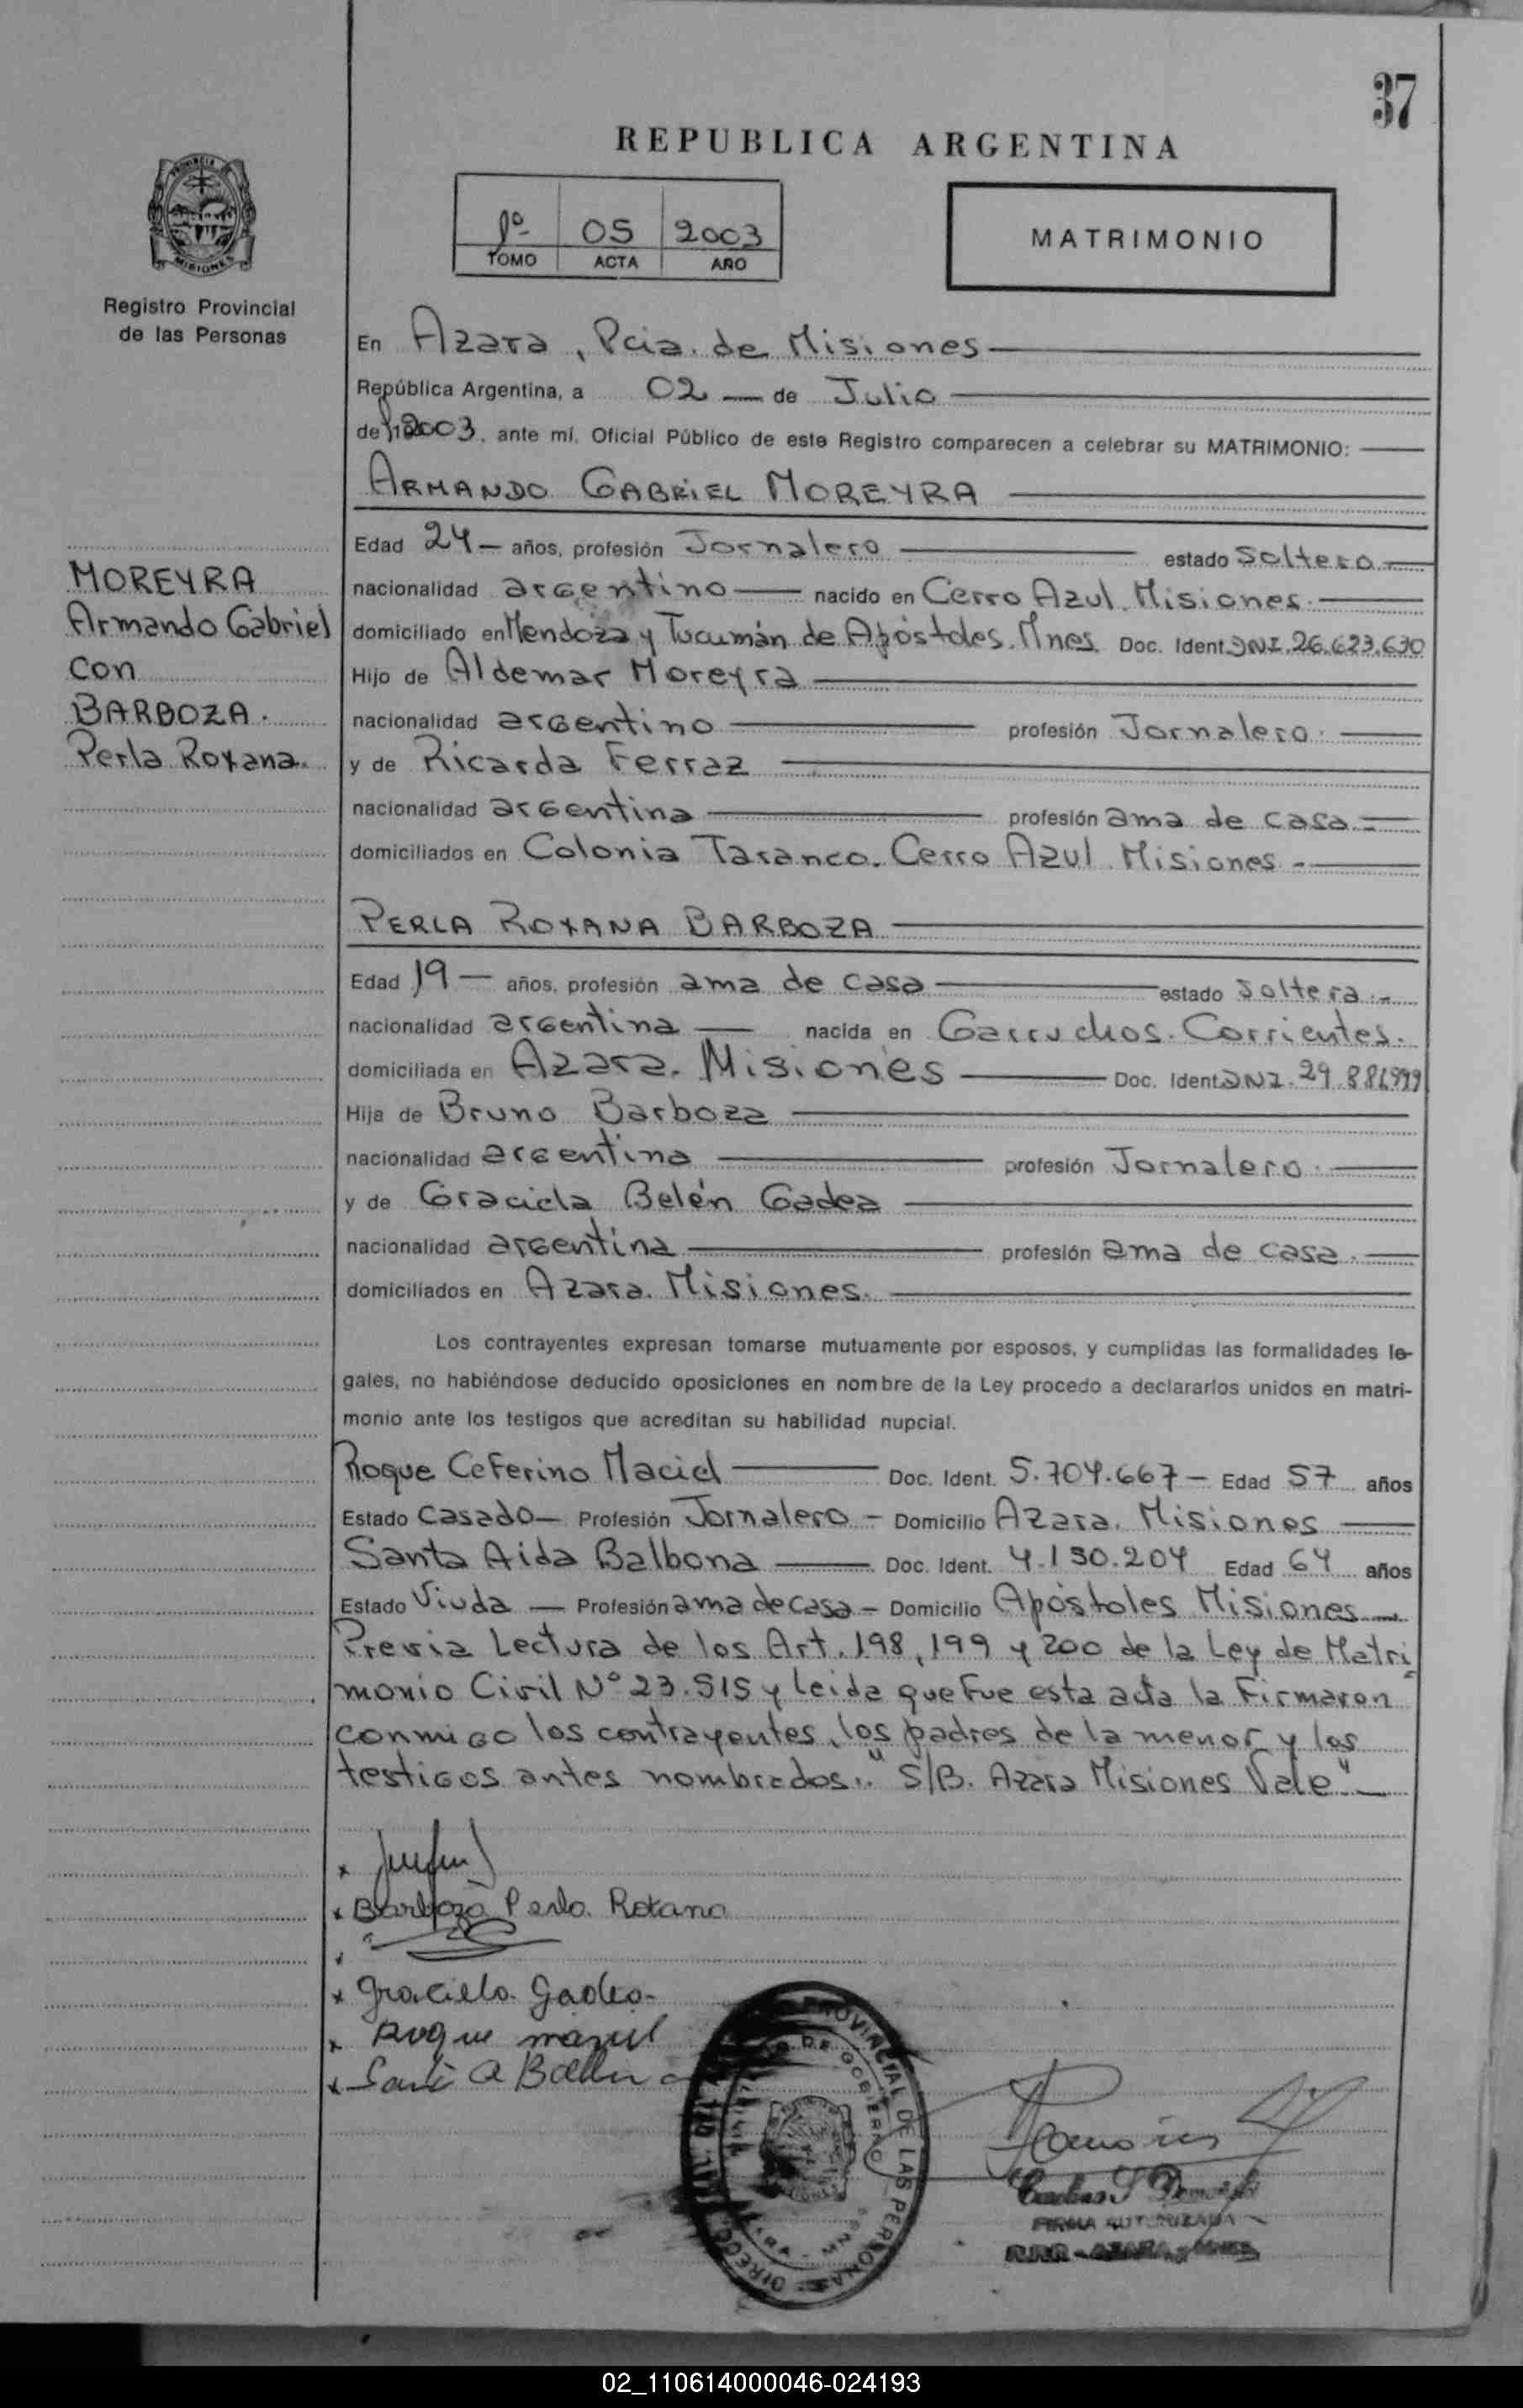 37
REPUBLICA ARGENTINA
1º 05 2003
TOMO ACTA AÑO
MATRIMONIO
PROVINCIA
MISIONES
Registro Provincial
de las Personas
MOREYRA
Armando Gabriel
con
BARBOZA.
Perla Roxana.
En Azara, Pcia. de Misiones
República Argentina, a 02 — de Julio
de 2003, ante mí, Oficial Público de este Registro comparecen a celebrar su MATRIMONIO:
ARMANDO GABRIEL MOREYRA
Edad 24 — años, profesión Jornalero estado Soltero
nacionalidad argentino — nacido en Cerro Azul. Misiones.
domiciliado en Mendoza y Tucumán de Apóstoles. Mnes. Doc. Ident. DNI. 26.623.630
Hijo de Aldemar Moreyra
nacionalidad argentino profesión Jornalero.
y de Ricarda Ferraz
nacionalidad argentina profesión ama de casa.
domiciliados en Colonia Taranco. Cerro Azul. Misiones -
PERLA ROXANA BARBOZA
Edad 19 — años, profesión ama de casa estado Soltera.-
nacionalidad argentina — nacida en Garruchos. Corrientes.
domiciliada en Azara. Misiones — Doc. Ident. DNI. 29.
Hija de Bruno Barboza
nacionalidad argentino profesión Jornalero.
y de Graciela Belén Gadea
nacionalidad argentina profesión ama de casa.
domiciliados en Azara. Misiones.
Los contrayentes expresan tomarse mutuamente por esposos, y cumplidas las formalidades le-
gales, no habiéndose deducido oposiciones en nombre de la Ley procedo a declararlos unidos en matri-
monio ante los testigos que acreditan su habilidad nupcial.
Roque Ceferino Maciel — Doc. Ident. 5.704.667 — Edad 57 años
Estado Casado — Profesión Jornalero — Domicilio Azara. Misiones
Santa Aida Balbona — Doc. Ident. 4.130.204 Edad 64 años
Estado Viuda — Profesión ama de casa — Domicilio Apóstoles Misiones
Previa Lectura de los Art. 198, 199 y 200 de la Ley de Matri
monio Civil Nº 23.515 y leida que fue esta acta la firmaron
conmigo los contrayentes, los padres de la menor y los
testigos antes nombrados.. "S/B. Azara Misiones Vale"
Barboza Perla Roxana
Graciela Gadea
Roque maciel
PROVINCIAL DE LAS PERSONAS
DE GOBIERNO
FIRMA AUTORIZADA
R.P.P. - AZARA - MNES
02_110614000046-024193